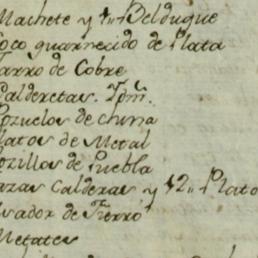 Machete y 1,, Belduque
Coco guarnecido de Plata
Jarro de Cobre
Calderetas. Ipm.
Pozuelos de china
Platos de Metal
Pozillos de Puebla
Tazas Calderas y 12,, Plato
de Fierro
Metates